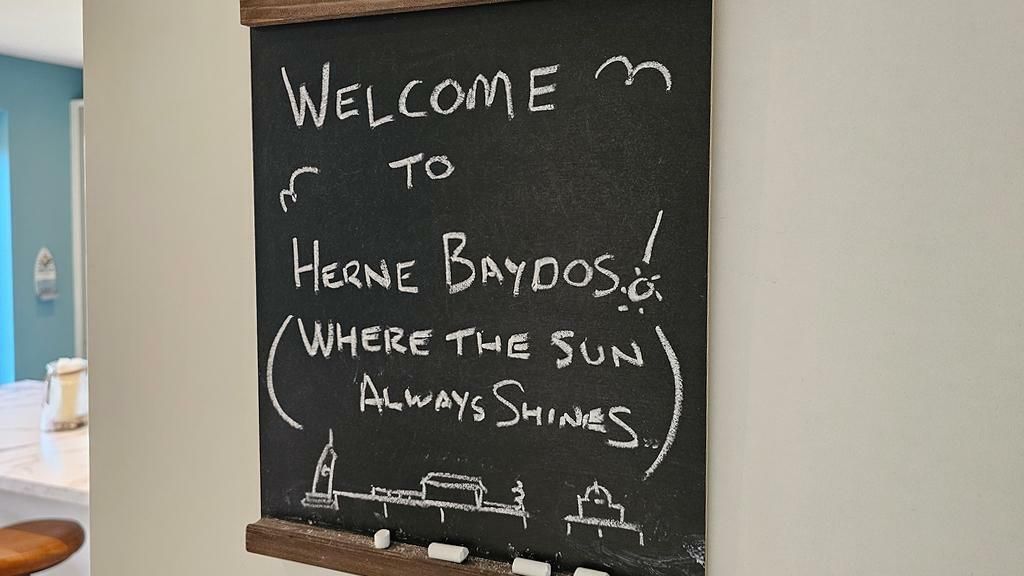 WELCOME
TO
HERNE BAYDOS!
(WHERE THE SUN
ALWAYS SHINES..)